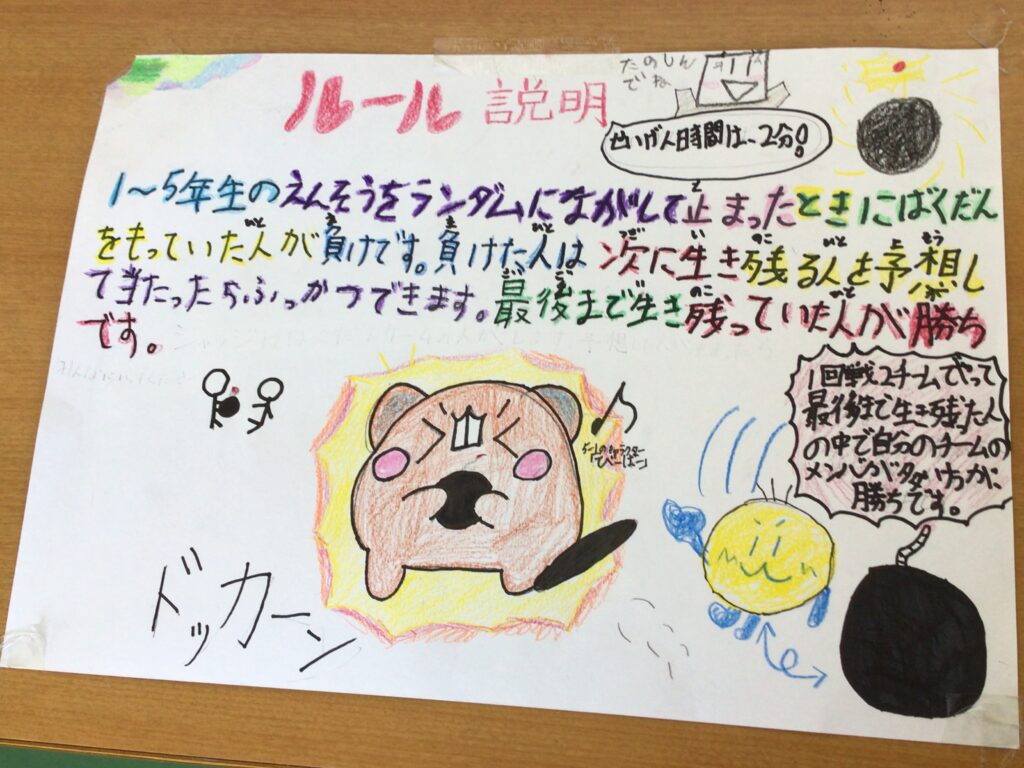 ルール説明
たのしん
でね
せいげん時間は、2分!
1〜5年生のえんそうをランダムにながして止まったときにばくだん
をもっていた人が負けです。負けた人は次に生き残る人を予想し
て当たったらふっかつできます。最後まで生き残っていた人が勝ち
です。
1回戦2チームでやって
最後まで生き残った人
の中で自分のチームの
メンバーが多い方が
勝ちです。
ドッカーン